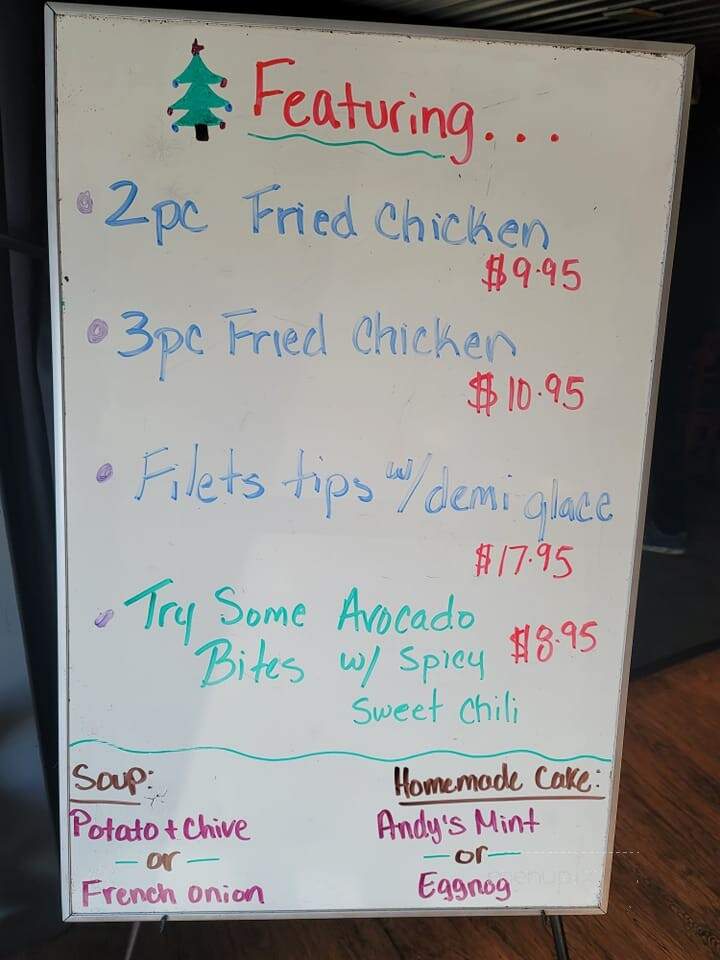 Featuring...
2pc Fried Chicken
$9.95
3pc Fried Chicken
$10.95
Filets tips w/demi glace
$17.95
Try Some Avocado
Bites w/ Spicy $8.95
Sweet Chili
Soup: Homemade Cake:
Potato + Chive Andy's Mint
- or - - or -
French Onion Eggnog